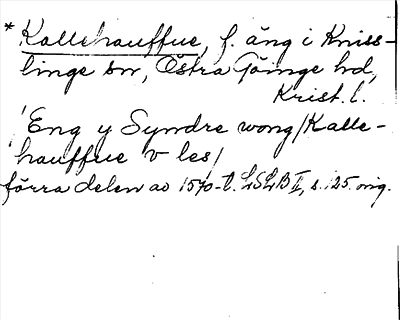 * Kallehauffue, f. äng i Kniss-
linge sn, Östra Göinge hd,
Krist. l.
Eng y Syndre wong/Kalle-
hauffue v les/
förra delen av 1570-t. LSLB II, s. 125. orig.